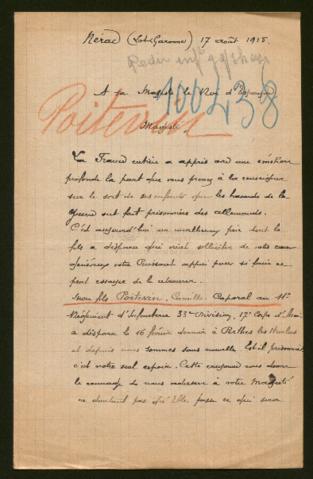 Nérac (Lot & Garonne) 17 août 1915.
100238
A Sa Majesté le Roi d'Espagne
Poitevin
Majesté,
La France entière a appris avec une émotion
profonde la part que vous prenez à la
sur le sort de ses enfants que les hasards de la
guerre ont fait prisonniers des allemands.
C'est aujourd'hui un malheureux père dont le
fils a disparu qui vient solliciter de votre cœur
généreux votre Puissant appui pour si faire se
peut essayer de le retrouver.
Mon fils Poitevin, Camille, Caporal au 11e
Régiment d'Infanterie 33e division, 17e Corps d'Armée
a disparu le 16 février dernier à Perthes les Hurlus
et depuis nous sommes sans nouvelle. Est-il prisonnier
c'est notre seul espoir. Cette nous donne
le courage de nous adresser à votre Majesté
ne doutant pas qu'Elle fasse ce qui sera